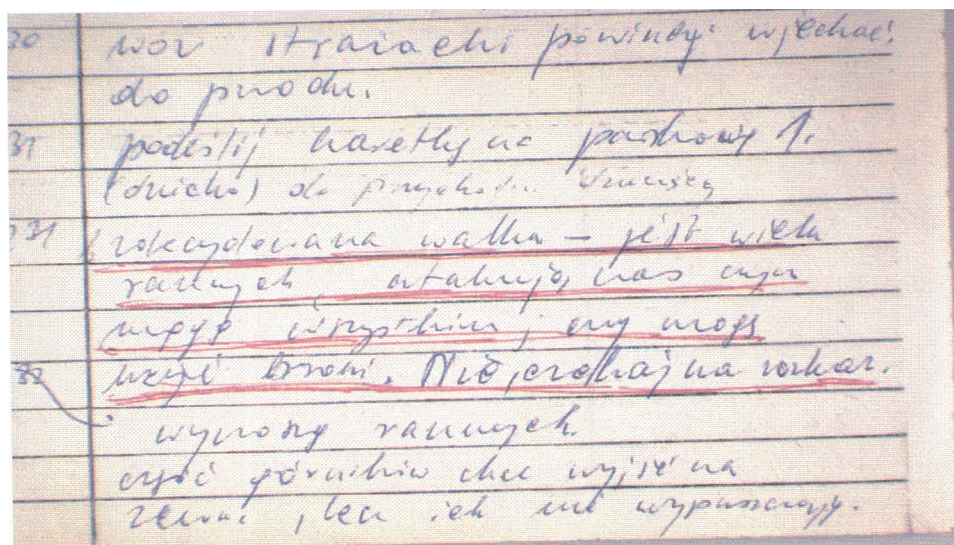 30 wóz strażacki powinny wjechać
do przodu.
31 podeślij karetkę na parkowy 1.
(cicho) do przychodni
31 zdecydowana walka – jest wielu
rannych, atakują nas czym
mogą wszystkim, czy mogę
użyć broni. Nie, czekaj na rozkaz.
32
wynoszę rannych.
część górników chce wyjść na
zewnć, lecz ich nie wypuszczają.